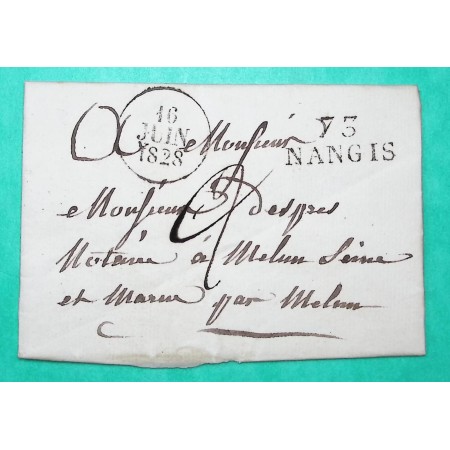 16
JUIN
1828
73
NANGIS
Monsieur
Monsieur Despres
Notaire à Melun Seine
et Marne par Melun